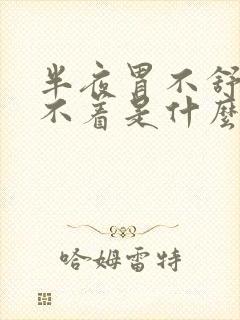 半夜胃不舒
不着是什麼
哈姆雷特